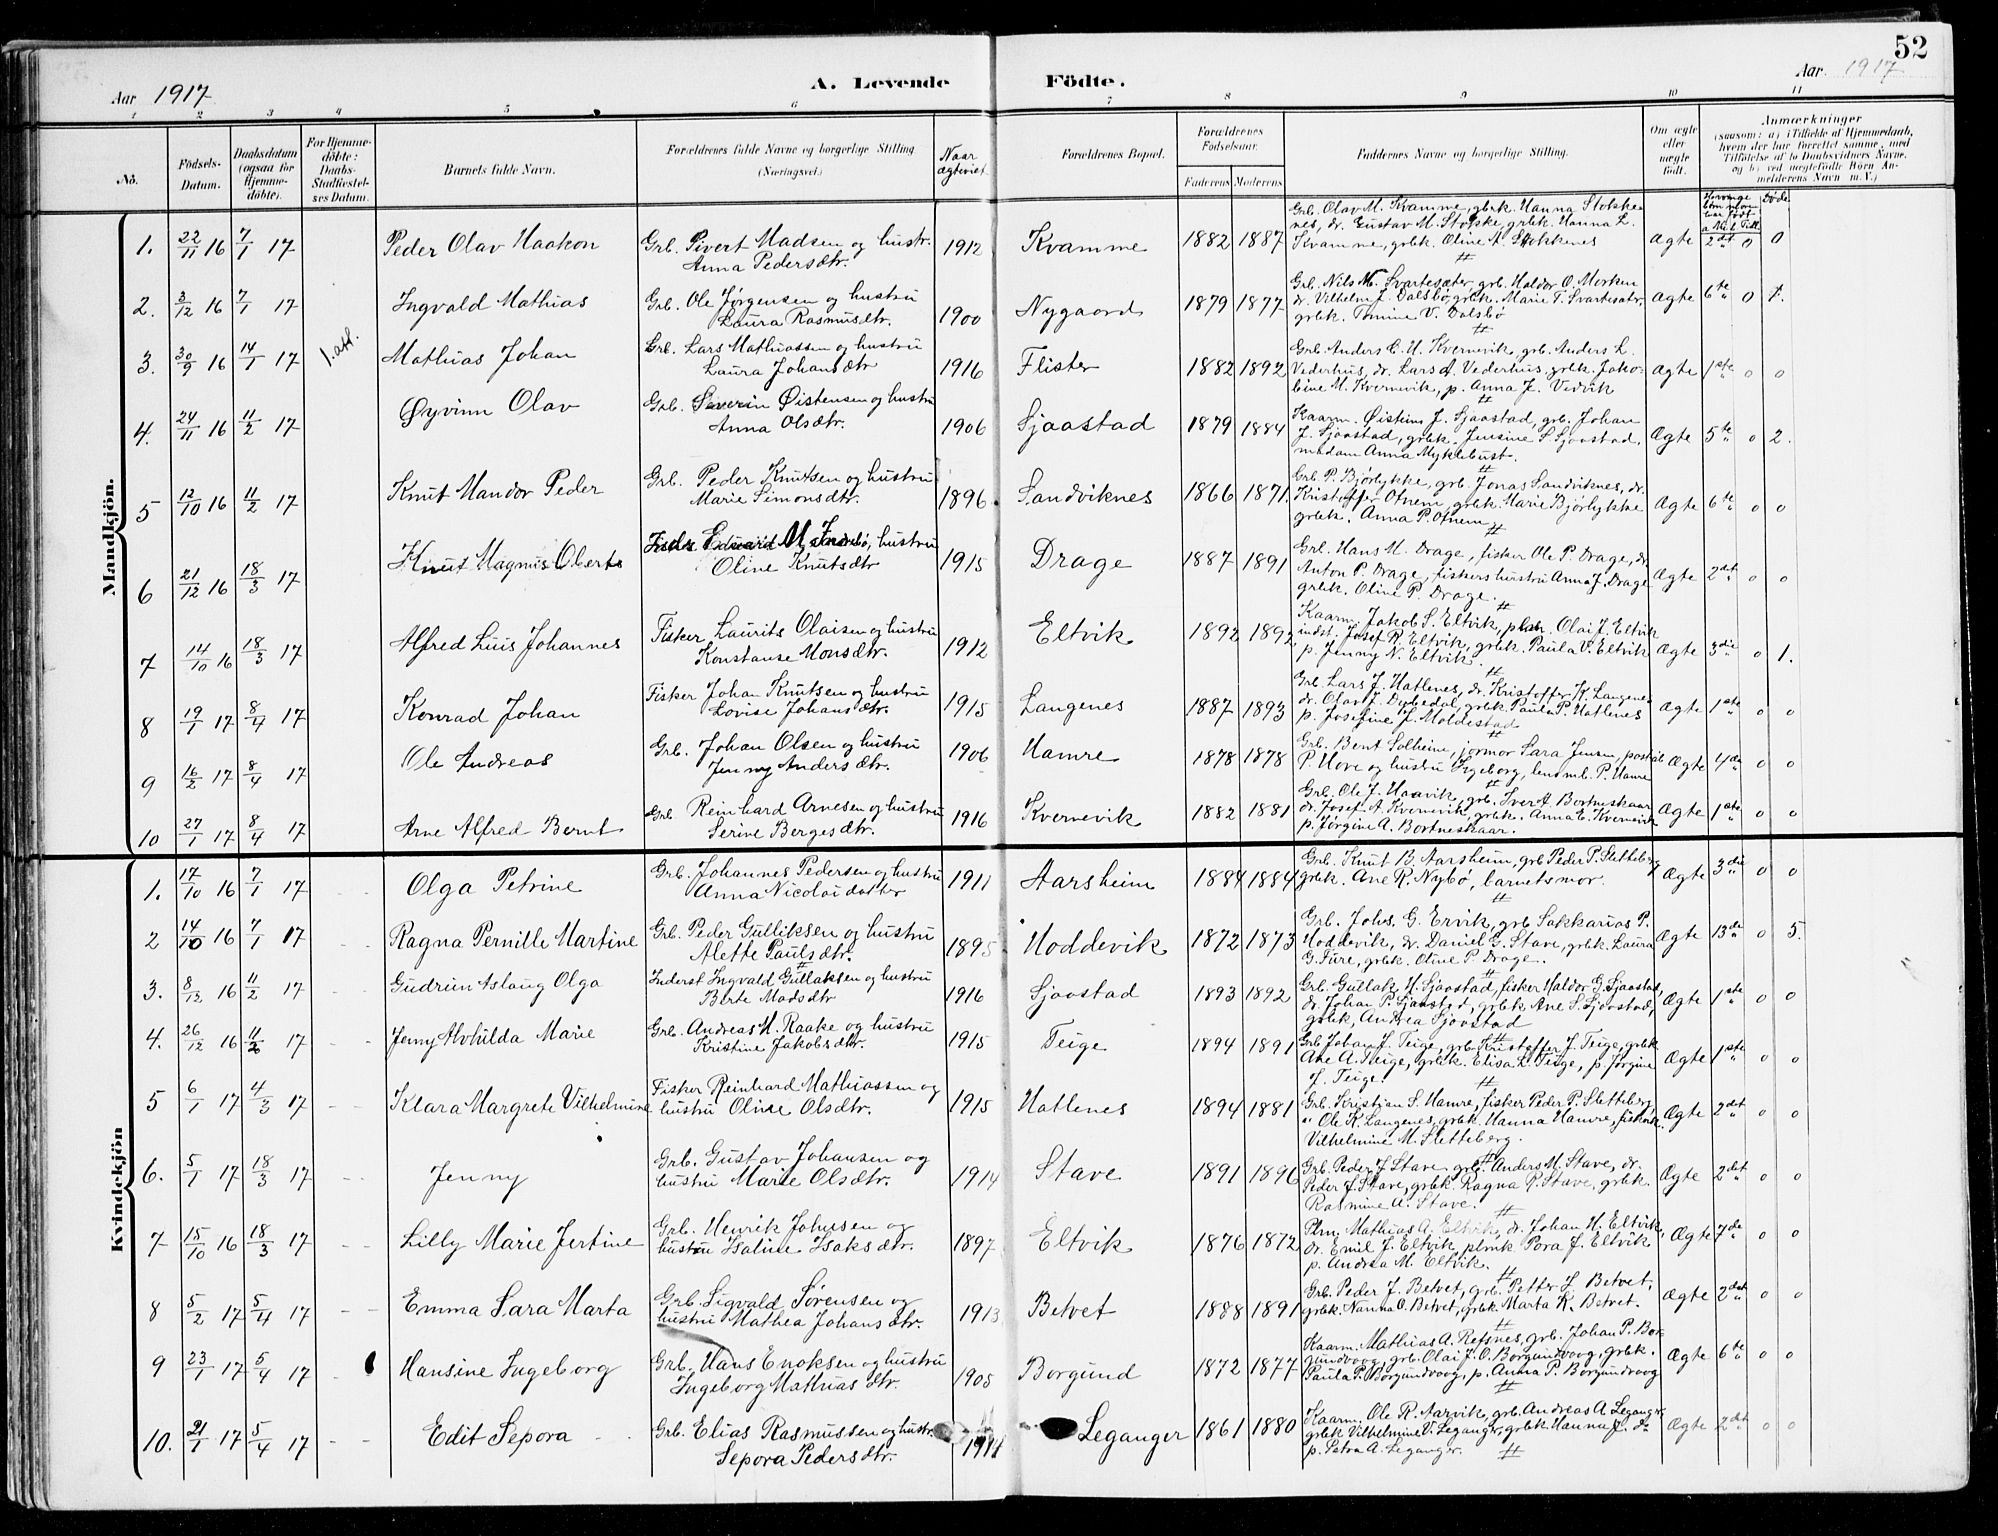 52
Aar 1917
A. Levende Födte.
Aar 1917
1 2 3 4 5 6 7 8 9 10 11
No.
Födsels-Datum.
Daabsdatum (ogsaa for Hjemme-döbte).
For Hjemme-döbte: Daabs-Stadfæstel-ses Datum.
Barnets fulde Navn.
Forældrenes fulde Navne og borgerlige Stilling (Næringsvei.)
Naar ægteviet.
Forældrenes Bopæl.
Forældrenes Födselsaar.
Faderens Moderens
Faddernes Navne og borgerlige Stilling.
Om ægte eller uægte födt.
Anmærkninger
(saasom: a) i Tilfælde af Hjemmedaab, hvem der har forrettet samme, med Tilföielse af to Daabsvidners Navne, og b) ved uægtefödte Börn An-melderens Navn m. V.)
Døde
Mandkjön.
1. 22/11 16 7/1 17 Peder Olav Haakon Grb. Sivert Madsen og hustr. Anna Pedersdtr. 1912 Kvamme 1882 1887 Grb. Olav M. Kvamme, grbk. Hanna Stokke-
nes, dr. Gustav M. Stokke, grbk. Hanna L.
Kvamme, grbk. Oline A. Stokkenes Ægte 2det 0 0
2. 3/12 16 7/1 17 Ingvald Mathias Grb. Ole Jørgensen og hustru Laura Rasmusdtr. 1900 Nygaard 1879 1877 Grb. Nils M. Svartesæter, grb. Haldor O. Morken
dr. Vilhelm J. Dalsbø, grbk. Marie T. Svartesæter,
grbk. Tomine V. Dalsbø Ægte 6te 0 1.
3. 30/9 16 14/1 17 1. apl. Mathias Johan Grb. Lars Mathiassen og hustru Laura Johansdtr 1916 Flister 1882 1892 Grb. Anders C. H. Kvernevik, grb. Anders L.
Vederhus, dr. Lars A. Vederhus, grbk. Jako-
bine M. Kvernevik, p. Anna J. Vedvik Ægte 1ste 0 0
4. 24/11 16 11/2 17 Øyvinn Olav Grb. Severin Øistensen og hustru Anna Olsdtr. 1906 Sjaastad 1879 1884 Kaarm. Øistein J. Sjaastad, grb. Johan
J. Sjaastad, grbk. Jensine S. Sjaastad,
madam Anna Myklebust. Ægte 5te 0 2.
5 12/10 16 11/2 17 Knut Mandor Peder Grb. Peder Knutsen og hustru Marie Simonsdtr. 1896 Sandviknes 1866 1871 Grb. P. Bjørlykke, grb. Jonas Sandviknes, dr.
Kristoffer Otnem, grbk. Marie Bjørlykke
grbk. Anna P. Otnem. Ægte 6te 0 0
6 21/12 16 18/3 17 Knut Magnus Oberts Fisker Edvard M. , hustru Oline Knutsdtr 1915 Drage 1887 1891 Grb. Hans M. Drage, fisker Ole P. Drage, dr.
Anton P. Drage, fiskers hustru Anna J. Drage
grbk. Oline P. Drage. Ægte 2det 0 0
7 14/10 16 18/3 17 Alfred Luis Johannes Fisker Laurits Olaisen og hustru Konstanse Monsdtr. 1912 Eltvik 1892 1892 Kaarm. Jakob S. Eltvik, plbr. Olai J. Eltvik
indst. Josef R. Eltvik, grbk. Paula V. Eltvik
p. Jenny N. Eltvik. Ægte 3die 0 1.
8 19/1 17 8/4 17 Konrad Johan Fisker Johan Knutsen og hustru Lovise Johansdtr. 1915 Langenes 1887 1893 Grb. Lars J. Hatlenes, dr. Kristoffer K. Langenes
dr. Olav J. Dybedal, grbk. Paula P. Hatlenes
p. Josefine J. Moldestad Ægte 1ste 0 0
9 16/2 17 8/4 17 Ole Andreas Grb. Johan Olsen og hustru Jenny Andersdtr. 1906 Hamre 1878 1878 Grb. Bent Solheim, jormor Sara Jensen,
P. Hove og hustru Ingeborg, lensm. P. Hamre Ægte 4de 0 0
10 27/1 17 8/4 17 Arne Alfred Bernt Grb. Reinhard Arnesen og hustru Serine Bergesdtr. 1916 Kvernevik 1882 1881 Grb. Ole J. Haavik, grb. Iver A. Bortneskaar
dr. Josef A. Kvernevik, grbk. Anna E. Kvernevik
p. Jørgine A. Bortneskaar. Ægte 1ste 0 0
Kvindekjön
1. 17/10 16 7/1 17 Olga Petrine Grb. Johannes Pedersen og hustru Anna Nicolaidatter 1911 Aarsheim 1884 1884 Grb. Knut B. Aarsheim, grb Peder P. Sletteberg
grbk. Ane R. Nybø, barnets mor. Ægte 3die 0 0
2 14/10 16 7/1 17 Ragna Pernille Martine Grb. Peder Gulliksen og hustru Alette Paulsdtr. 1895 Hoddevik 1872 1873 Grb. Johs. G. Ervik, grb Sakkarias P.
Hoddevik, dr. Daniel G. Stave, grbk. Laura
G. Fure, grbk. Oline P. Drage. Ægte 13de 0 5.
3. 8/12 16 11/2 17 Gudrun Aslaug Olga Inderst Ingvald Gullaksen og hustru Berte Madsdtr 1916 Sjaastad 1893 1892 Grb. Gullak H. Sjaastad, fisker Haldor G. Sjaastad,
dr. Johan P. Sjaastad, grbk Ane S. Sjaastad,
grbk, Andrea Sjaastad Ægte 1ste 0 0
4. 26/12 16 11/2 17 Jenny Alvhilda Marie Grb. Andreas H. Raake og hustru Kristine Jakobsdtr. 1915 Teige 1894 1891 Grb Johan S. Teige, grb. Kristoffer J. Teige, grbk
Ane A. Teige, grbk. Elisa L. Teige, p. Jørgine
J. Teige. Ægte 1ste 0 0
5 6/1 17 4/3 17 Klara Margrete Vilhelmine Fisker Reinhard Mathiassen og hustru Oline Olsdtr. 1915 Hatlenes 1894 1881 Grb. Kristian S. Hamre, fisker Peder P. Sletteberg,
" Ole K. Langenes, grbk. Hanna Hamre, fiskerk.
Vilhelmine M. Sletteberg. Ægte 2det 0 0
6. 5/1 17 18/3 17 Jenny Grb. Gustav Johansen og hustru Marie Olsdtr. 1914 Stave 1891 1896 Grb. Peder J Stave grb. Anders M. Stave, dr.
Peder J. Stave, grbk. Ragna R. Stave, grbk.
Rasmine A. Stave. Ægte 2det 0 0
7 15/10 16 18/3 17 Lilly Marie Jertine Grb. Henrik Johnsen og hustru Isaline Isaksdtr. 1897 Eltvik 1876 1872 Plm. Mathias A. Eltvik, dr. Johan H. Eltvik,
dr. Emil J. Eltvik, plmk Pora J. Eltvik
p. Andrea M. Eltvik. Ægte 7de 0 0
8 5/2 17 5/4 17 Emma Sara Marta Grb. Sigvald Sørensen og hustru Mathea Johansdtr. 1913 Betvet 1888 1891 Grb. Peder J. Betvet, grb. Petter J. Betvet,
grbk. Nanna O. Betvet, grbk Marta K. Betvet. Ægte 2det 0 0
9 23/1 17 5/4 17 Hansine Ingeborg Grb. Hans Enoksen og hustru Ingeborg Mathiasdtr. 1905 Borgund 1872 1877 Kaarm. Mathias A. Refsnes, grb. Johan P. Bor-
gundvaag, grb. Olai J. O. Borgundvaag, grbk.
Paula P. Borgundvaag, p. Anna P. Borgundvaag Ægte 6te 0 0
10. 21/1 17 5/4 17 Edit Sepora Grb. Elias Rasmussen og hustr. Sepora Pedersdtr. 1911 Leganger 1861 1880 Kaarm. Ole R. Aarvik, grb. Andreas A. Leganger,
grbk Vilhelmine V. Leganger, grbk. Hanna J. do
p. Petra A. Leganger. Ægte 2det 0 0